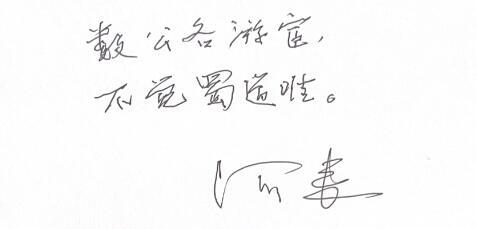 数公各游宦，
不觉蜀道难。